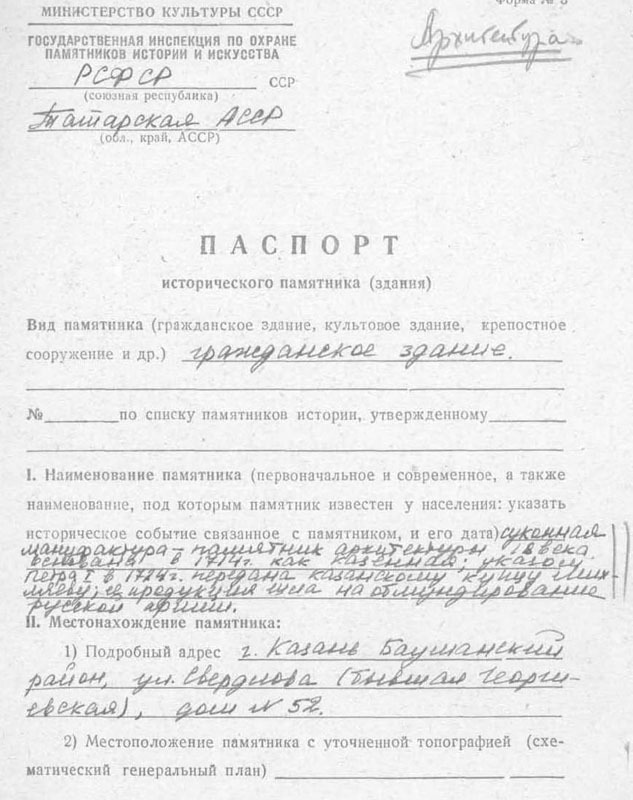 МИНИСТЕРСТВО КУЛЬТУРЫ СССР
Форма №
Архитектура
ГОСУДАРСТВЕННАЯ ИНСПЕКЦИЯ ПО ОХРАНЕ
ПАМЯТНИКОВ ИСТОРИИ И ИСКУССТВА
РСФСР ССР
(союзная республика)
Татарская АССР
(обл., край, АССР)
ПАСПОРТ
исторического памятника (здания)
Вид памятника (гражданское здание, культовое здание, крепостное
сооружение и др.) гражданское здание.
№ по списку памятников истории, утвержденному
I. Наименование памятника (первоначальное и современное, а также
наименование, под которым памятник известен у населения: указать
историческое событие связанное с памятником, и его дата) суконная
мануфактура – памятник архитектуры 18 века
основана в 1714г. как казенная; указом
Петра I в 1724г. передана казанскому купцу Мих-
ляеву; её продукция шла на обмундирование
русской армии.
II. Местонахождение памятника:
1) Подробный адрес г. Казань Бауманский
район, ул. Свердлова (бывшая Георги-
евская), дом N 52.
2) Местоположение памятника с уточненной топографией (схе-
матический генеральный план)